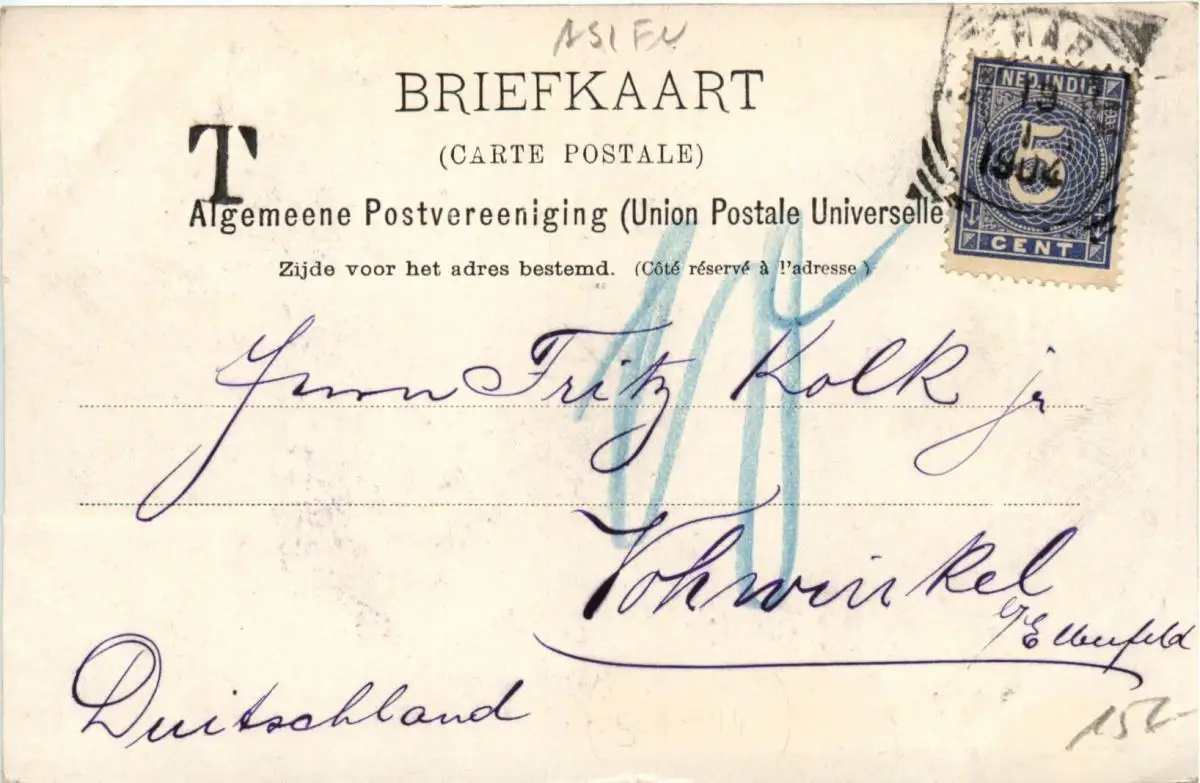 ASIEN
BRIEFKAART
(CARTE POSTALE)
T
Algemeene Postvereeniging (Union Postale Universelle
Zijde voor het adres bestemd. (Côté réservé à l'adresse)
NED. INDIE
19
1
1904
5
CENT
Herrn Fritz Kolk jr
Vohwinkel
b/Elberfeld
Duitschland
15